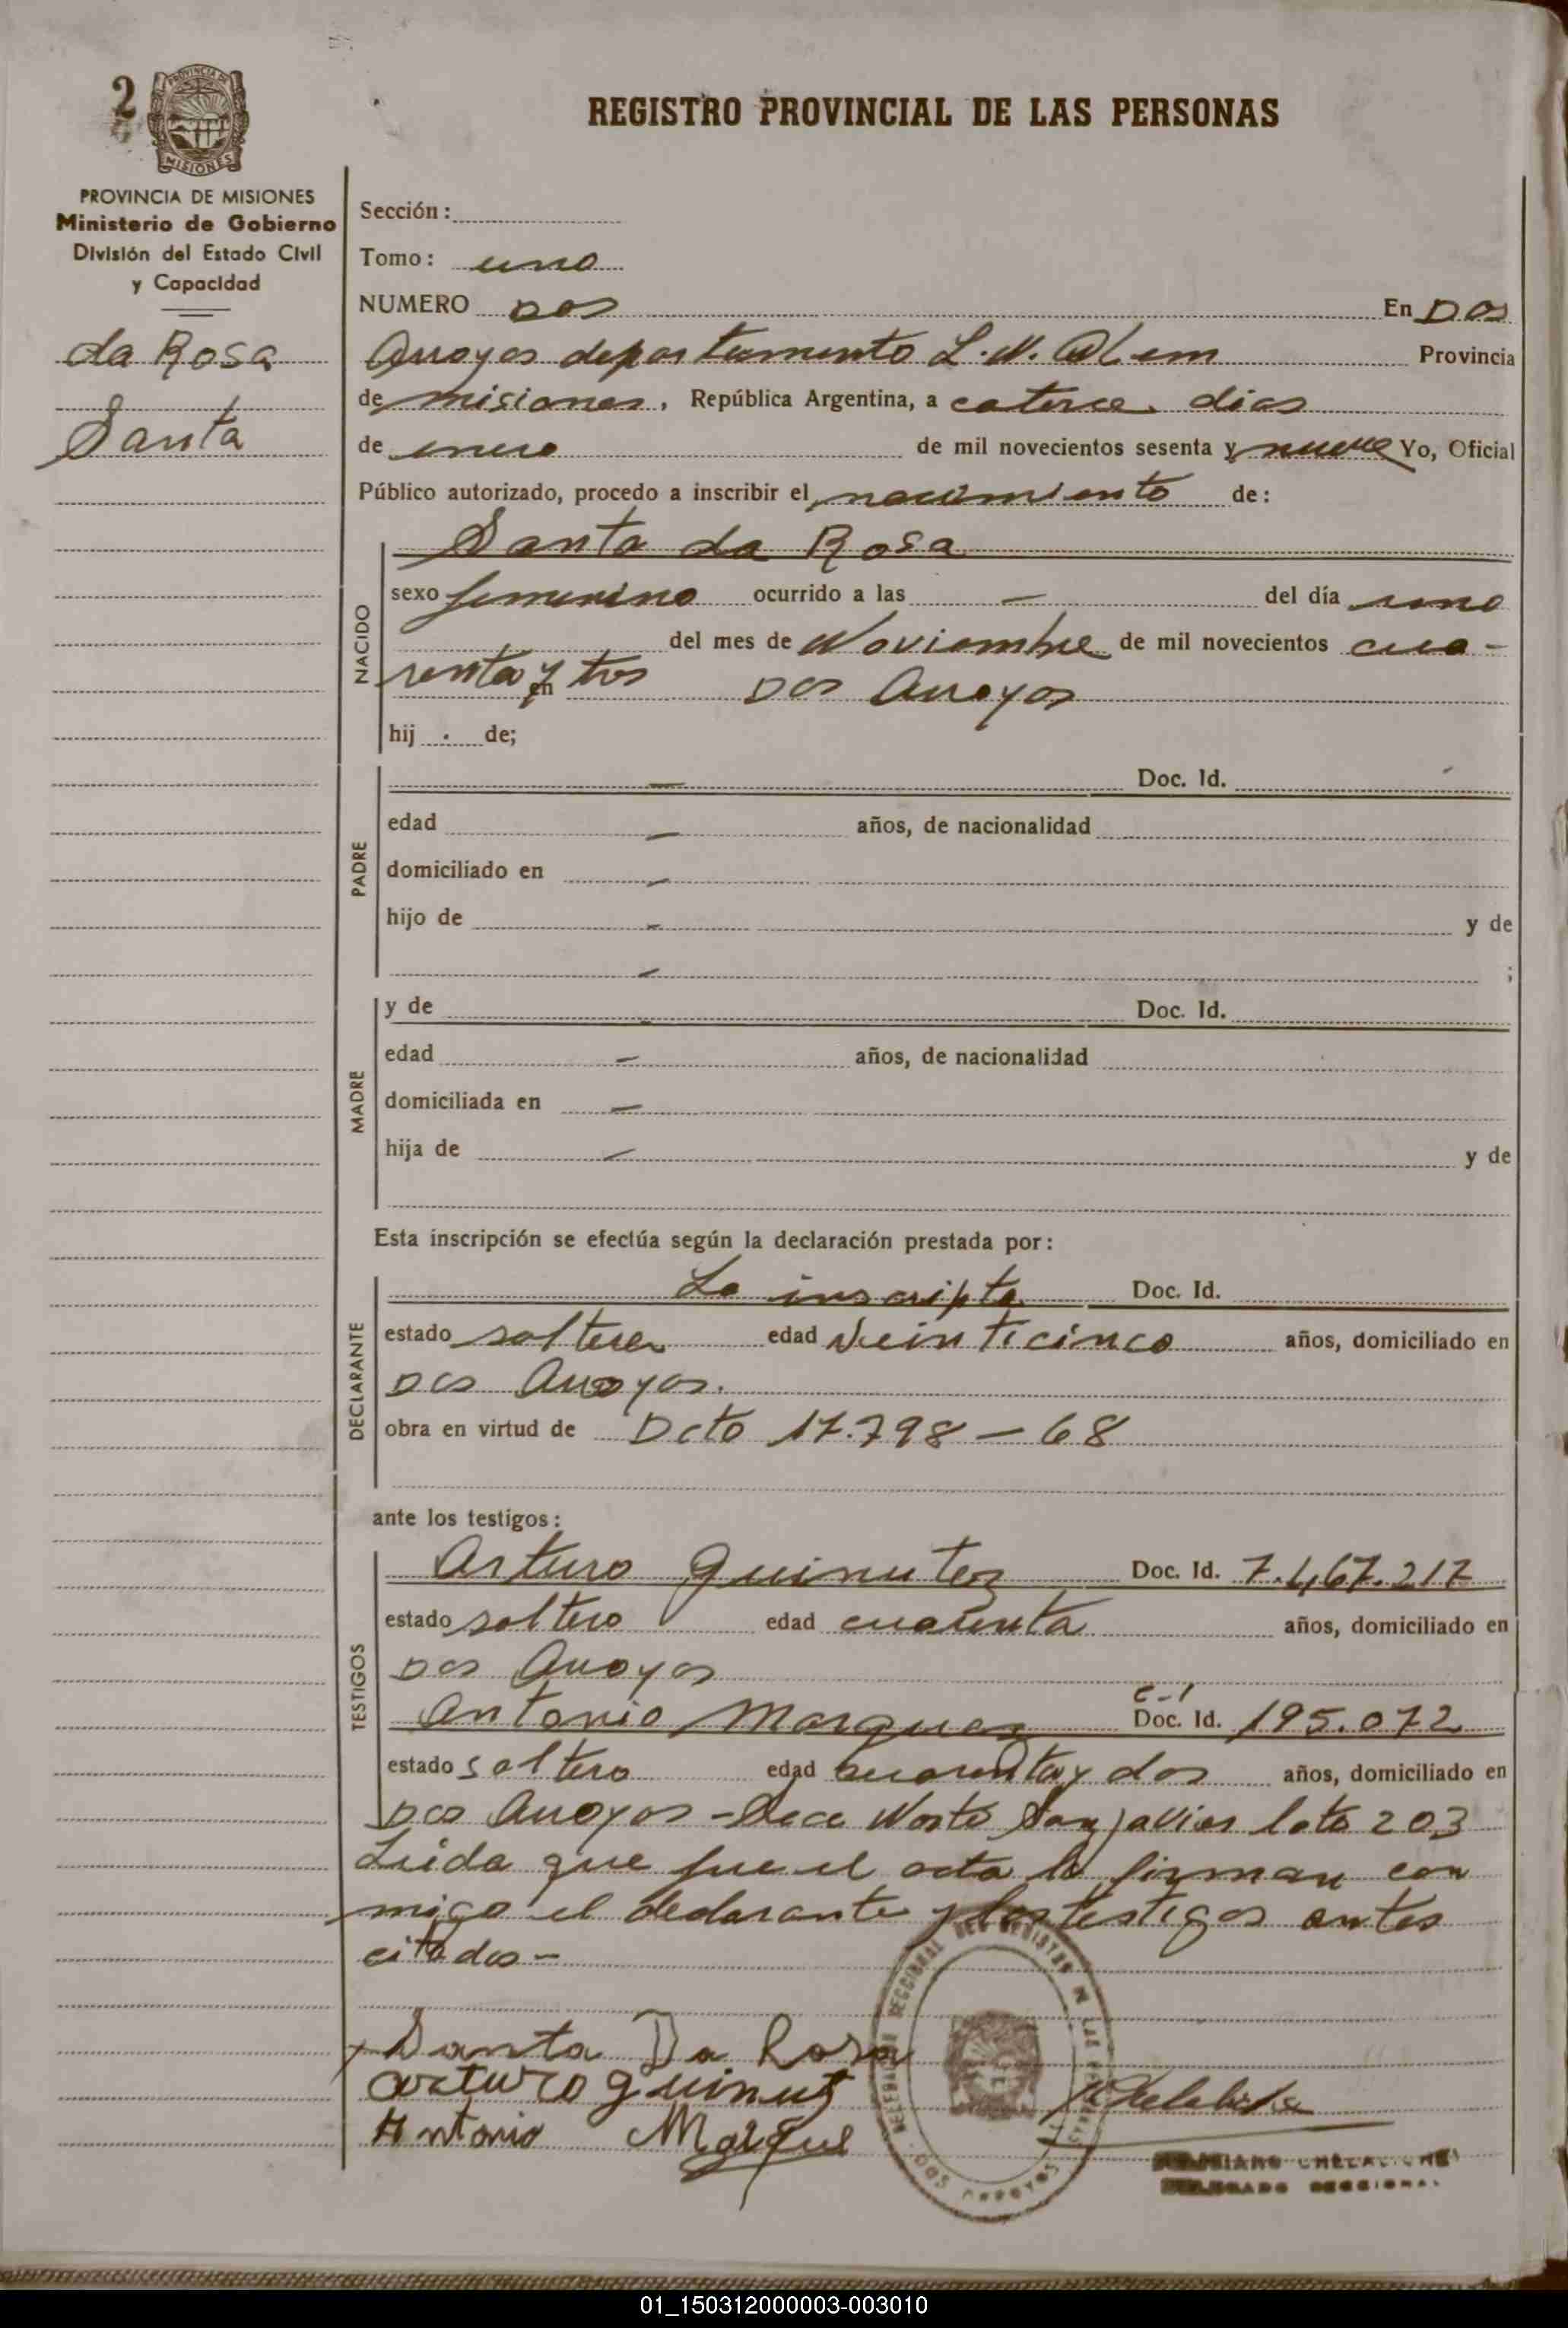 2
PROVINCIA DE
MISIONES
REGISTRO PROVINCIAL DE LAS PERSONAS
PROVINCIA DE MISIONES
Ministerio de Gobierno
División del Estado Civil
y Capacidad
da Rosa
Santa
Sección:
Tomo: uno
NUMERO Dos En Dos
Arroyos departamento L.N. Alem Provincia
de misiones, República Argentina, a catorce dias
de enero de mil novecientos sesenta y nueve Yo, Oficial
Público autorizado, procedo a inscribir el nacimiento de:
Santa da Rosa
NACIDO
sexo femenino ocurrido a las — del día uno
del mes de Noviembre de mil novecientos cua-
renta y tres en Dos Arroyos
hij . de;
PADRE
— Doc. Id.
edad — años, de nacionalidad
domiciliado en —
hijo de — y de
— ;
MADRE
y de — Doc. Id.
edad — años, de nacionalidad
domiciliada en —
hija de — y de
Esta inscripción se efectúa según la declaración prestada por:
DECLARANTE
La inscripta Doc. Id.
estado soltera edad veinticinco años, domiciliado en
Dos Arroyos.
obra en virtud de Dcto 17.798 — 68
ante los testigos:
TESTIGOS
Arturo Guimutez Doc. Id. 7.467.217
estado soltero edad cuarenta años, domiciliado en
Dos Arroyos
Antonio Marquez C-I Doc. Id. 195.072
estado soltero edad cuarenta y dos años, domiciliado en
Dos Arroyos - Secc Norte San javier lote 203
Leida que fue el acta la firman con
migo el declarante y los testigos antes
citados-
Santa Da Rosa
arturo guimut
Antonio Marque
DELEGACION SECCIONAL DEL REGISTRO DE LAS PERSONAS
DOS ARROYOS
DELEGADO SECCIONAL
01_150312000003-003010